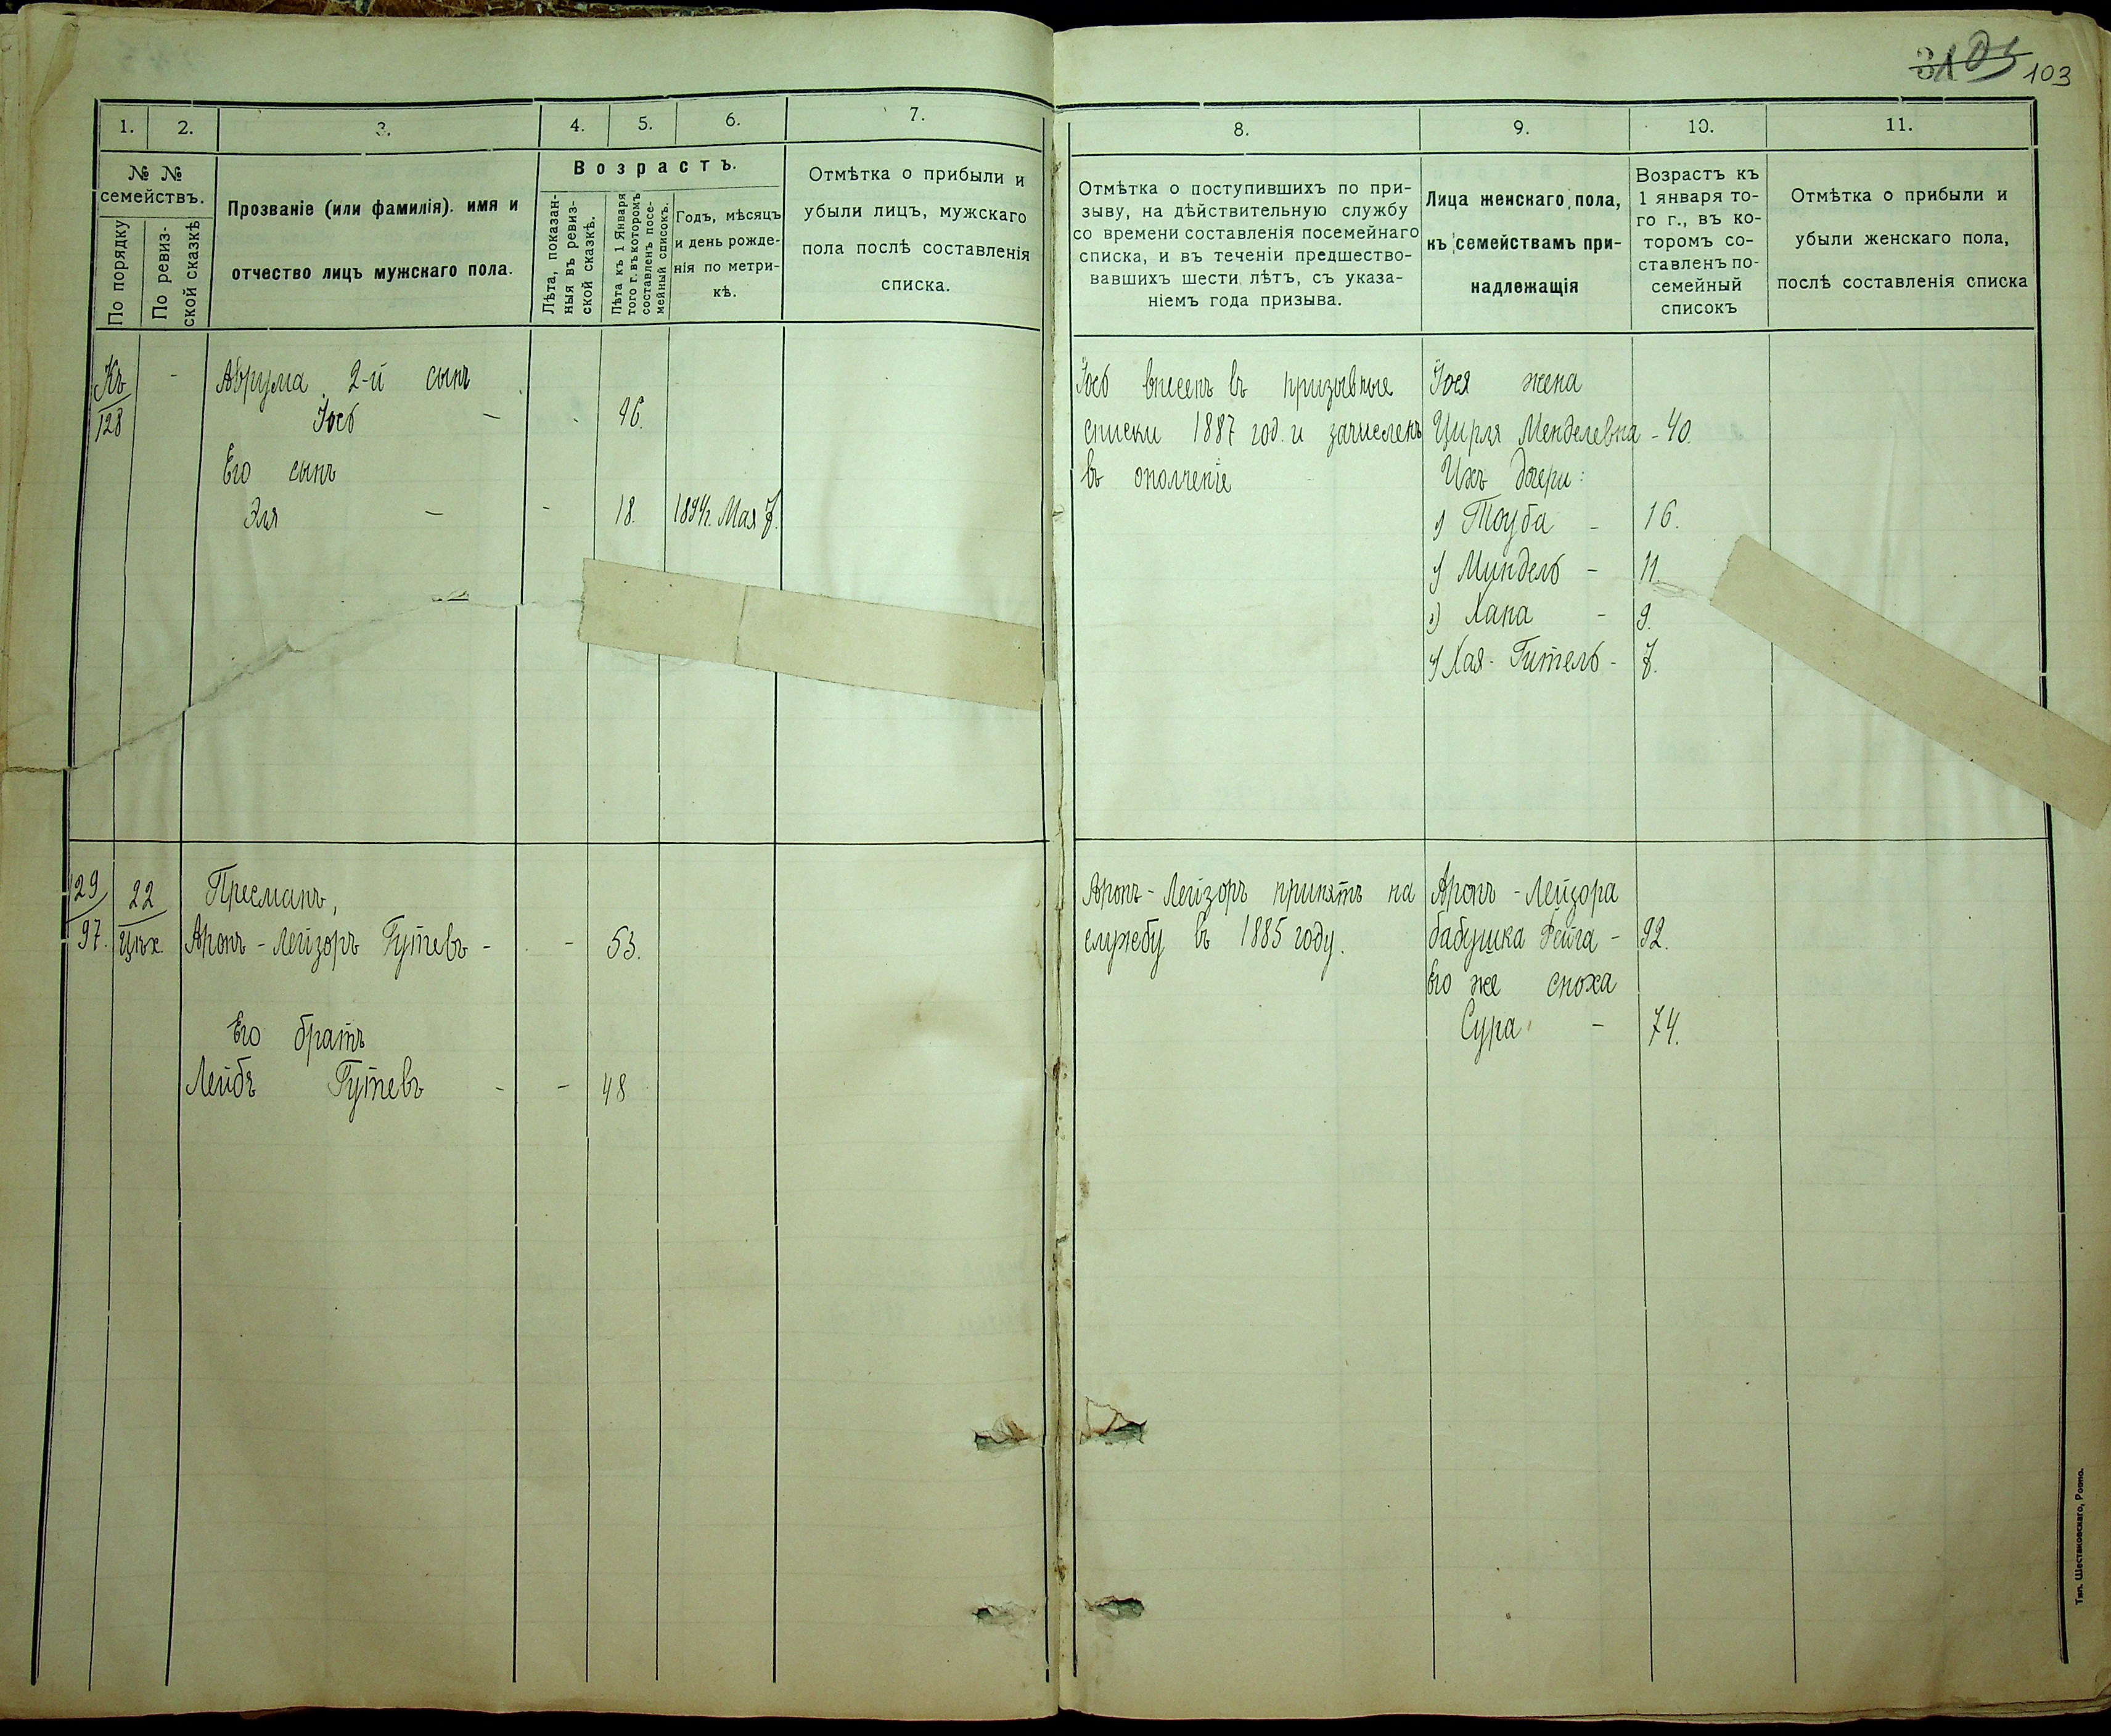 103
1.
2.
3.
4.
5.
6.
7.
№ №
семействъ.
По порядку
По ревиз-
ской сказкѣ
Прозваніе (или фамилія). имя и
отчество лицъ мужскаго пола.
Возрастъ.
Лѣта, показан-
ныя въ ревиз-
ской сказкѣ.
Лѣта къ 1 Января
того г. въ которомъ
составленъ посе-
мейный списокъ.
Годъ, мѣсяцъ
и день рожде-
нія по метри-
кѣ.
Отмѣтка о прибыли и
убыли лицъ, мужскаго
пола послѣ составленія
списка.
Къ
128
-
Аврума 2-й сынъ
Іось - - 46.
Его сынъ
Эля - - 18. 1894 г. Мая 7.
129
97.
22
Цех.
Пресманъ,
Аронъ-Лейзоръ Гутевъ - - 53.
Его братъ
Лейбъ Гутевъ - - 48
8.
9.
10.
11.
Отмѣтка о поступившихъ по при-
зыву, на дѣйствительную службу
со времени составленія посемейнаго
списка, и въ теченіи предшество-
вавшихъ шести лѣтъ, съ указа-
ніемъ года призыва.
Лица женскаго пола,
къ семействамъ при-
надлежащія
Возрастъ къ
1 января то-
го г., въ ко-
торомъ со-
ставленъ по-
семейный
списокъ
Отмѣтка о прибыли и
убыли женскаго пола,
послѣ составленія списка
Іось внесенъ въ призывные
списки 1887 год. и зачисленъ
въ ополченіе
Іося жена
Цирля Менделевна - 40.
Ихъ дочери:
1) Тоуба - 16.
2) Миндель - 11.
3) Хана - 9.
4) Хая-Гитель - 7.
Аронъ-Лейзоръ принятъ на
службу въ 1885 году.
Аронъ-Лейзора
бабушка Фейга - 92.
Его же сноха
Сура - 74.
Тип. Шестаковскаго, Ровно.